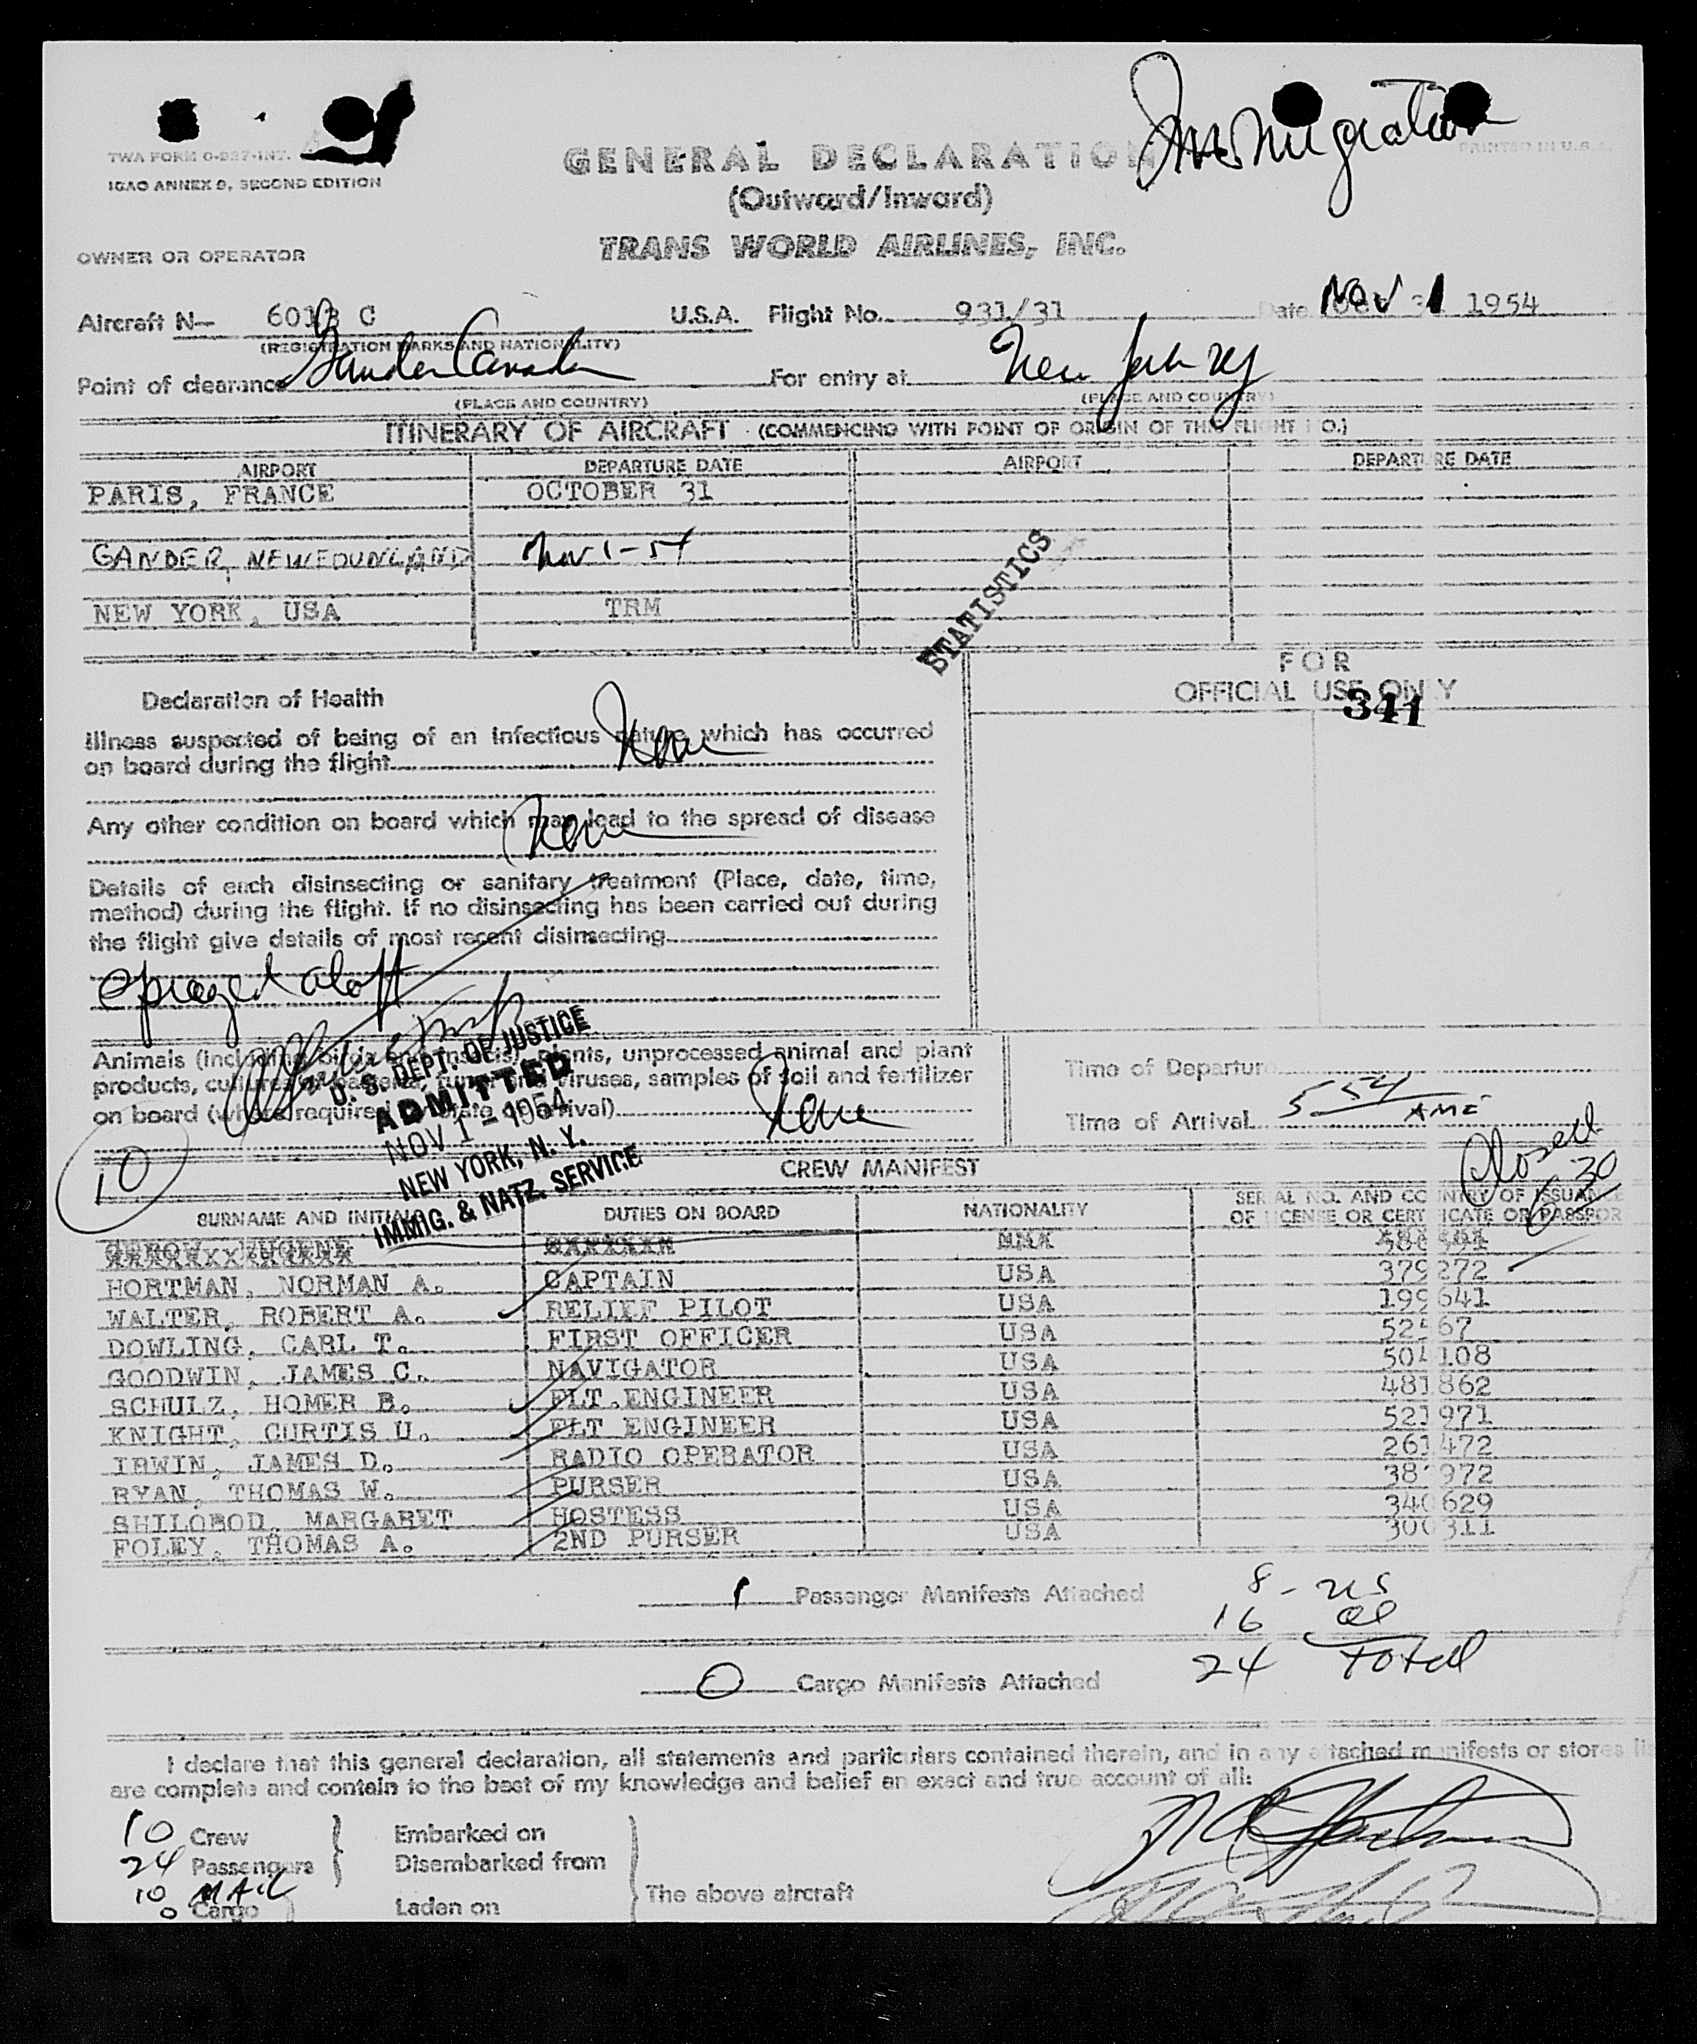 Immigration
TWA FORM O-937-INT.
ICAO ANNEX 9, SECOND EDITION
GENERAL DECLARATION
PRINTED IN U.S.A.
(Outward/Inward)
OWNER OR OPERATOR
TRANS WORLD AIRLINES, INC.
Aircraft N— C U.S.A. Flight No. 931/31 Date Nov 1 1954
(REGISTRATION MARKS AND NATIONALITY)
Point of clearance Gander Canada For entry at New York NY
(PLACE AND COUNTRY) (PLACE AND COUNTRY)
ITINERARY OF AIRCRAFT (COMMENCING WITH POINT OF ORIGIN OF THIS FLIGHT NO.)
AIRPORT DEPARTURE DATE AIRPORT DEPARTURE DATE
PARIS, FRANCE OCTOBER 31
GANDER, NEWFOUNDLAND Nov 1-54
NEW YORK, USA TRM
STATISTICS
FOR
OFFICIAL USE ONLY
341
Declaration of Health
Illness suspected of being of an infectious nature which has occurred
on board during the flight None
Any other condition on board which may lead to the spread of disease
None
Details of each disinsecting or sanitary treatment (Place, date, time,
method) during the flight. If no disinsecting has been carried out during
the flight give details of most recent disinsecting
Sprayed aloft
Animals (including birds and insects), plants, unprocessed animal and plant
products, cultures of bacteria, fungi and viruses, samples of soil and fertilizer
on board (where required by State of arrival) None
U. S. DEPT. OF JUSTICE
ADMITTED
NOV 1 - 1954
NEW YORK, N. Y.
IMMIG. & NATZ. SERVICE
Time of Departure
Time of Arrival 554 AME
Closed
630
10
CREW MANIFEST
SURNAME AND INITIALS DUTIES ON BOARD NATIONALITY SERIAL NO. AND COUNTRY OF ISSUANCE
OF LICENSE OR CERTIFICATE OR PASSPOR
HORTMAN, NORMAN A. CAPTAIN USA 379272
WALTER, ROBERT A. RELIEF PILOT USA 199641
DOWLING, CARL T. FIRST OFFICER USA 52567
GOODWIN, JAMES C. NAVIGATOR USA 504108
SCHULZ, HOMER B. FLT.ENGINEER USA 481862
KNIGHT, CURTIS U. FLT ENGINEER USA 521971
IRWIN, JAMES D. RADIO OPERATOR USA 261472
RYAN, THOMAS W. PURSER USA 972
SHILOBOD, MARGARET HOSTESS USA 340629
FOLEY, THOMAS A. 2ND PURSER USA 300311
1 Passenger Manifests Attached
8 - US
16 al
24 Total
0 Cargo Manifests Attached
I declare that this general declaration, all statements and particulars contained therein, and in any attached manifests or stores
are complete and contain to the best of my knowledge and belief an exact and true account of all:
10 Crew Embarked on
24 Passengers Disembarked from
10 MAIL The above aircraft
0 Cargo Laden on